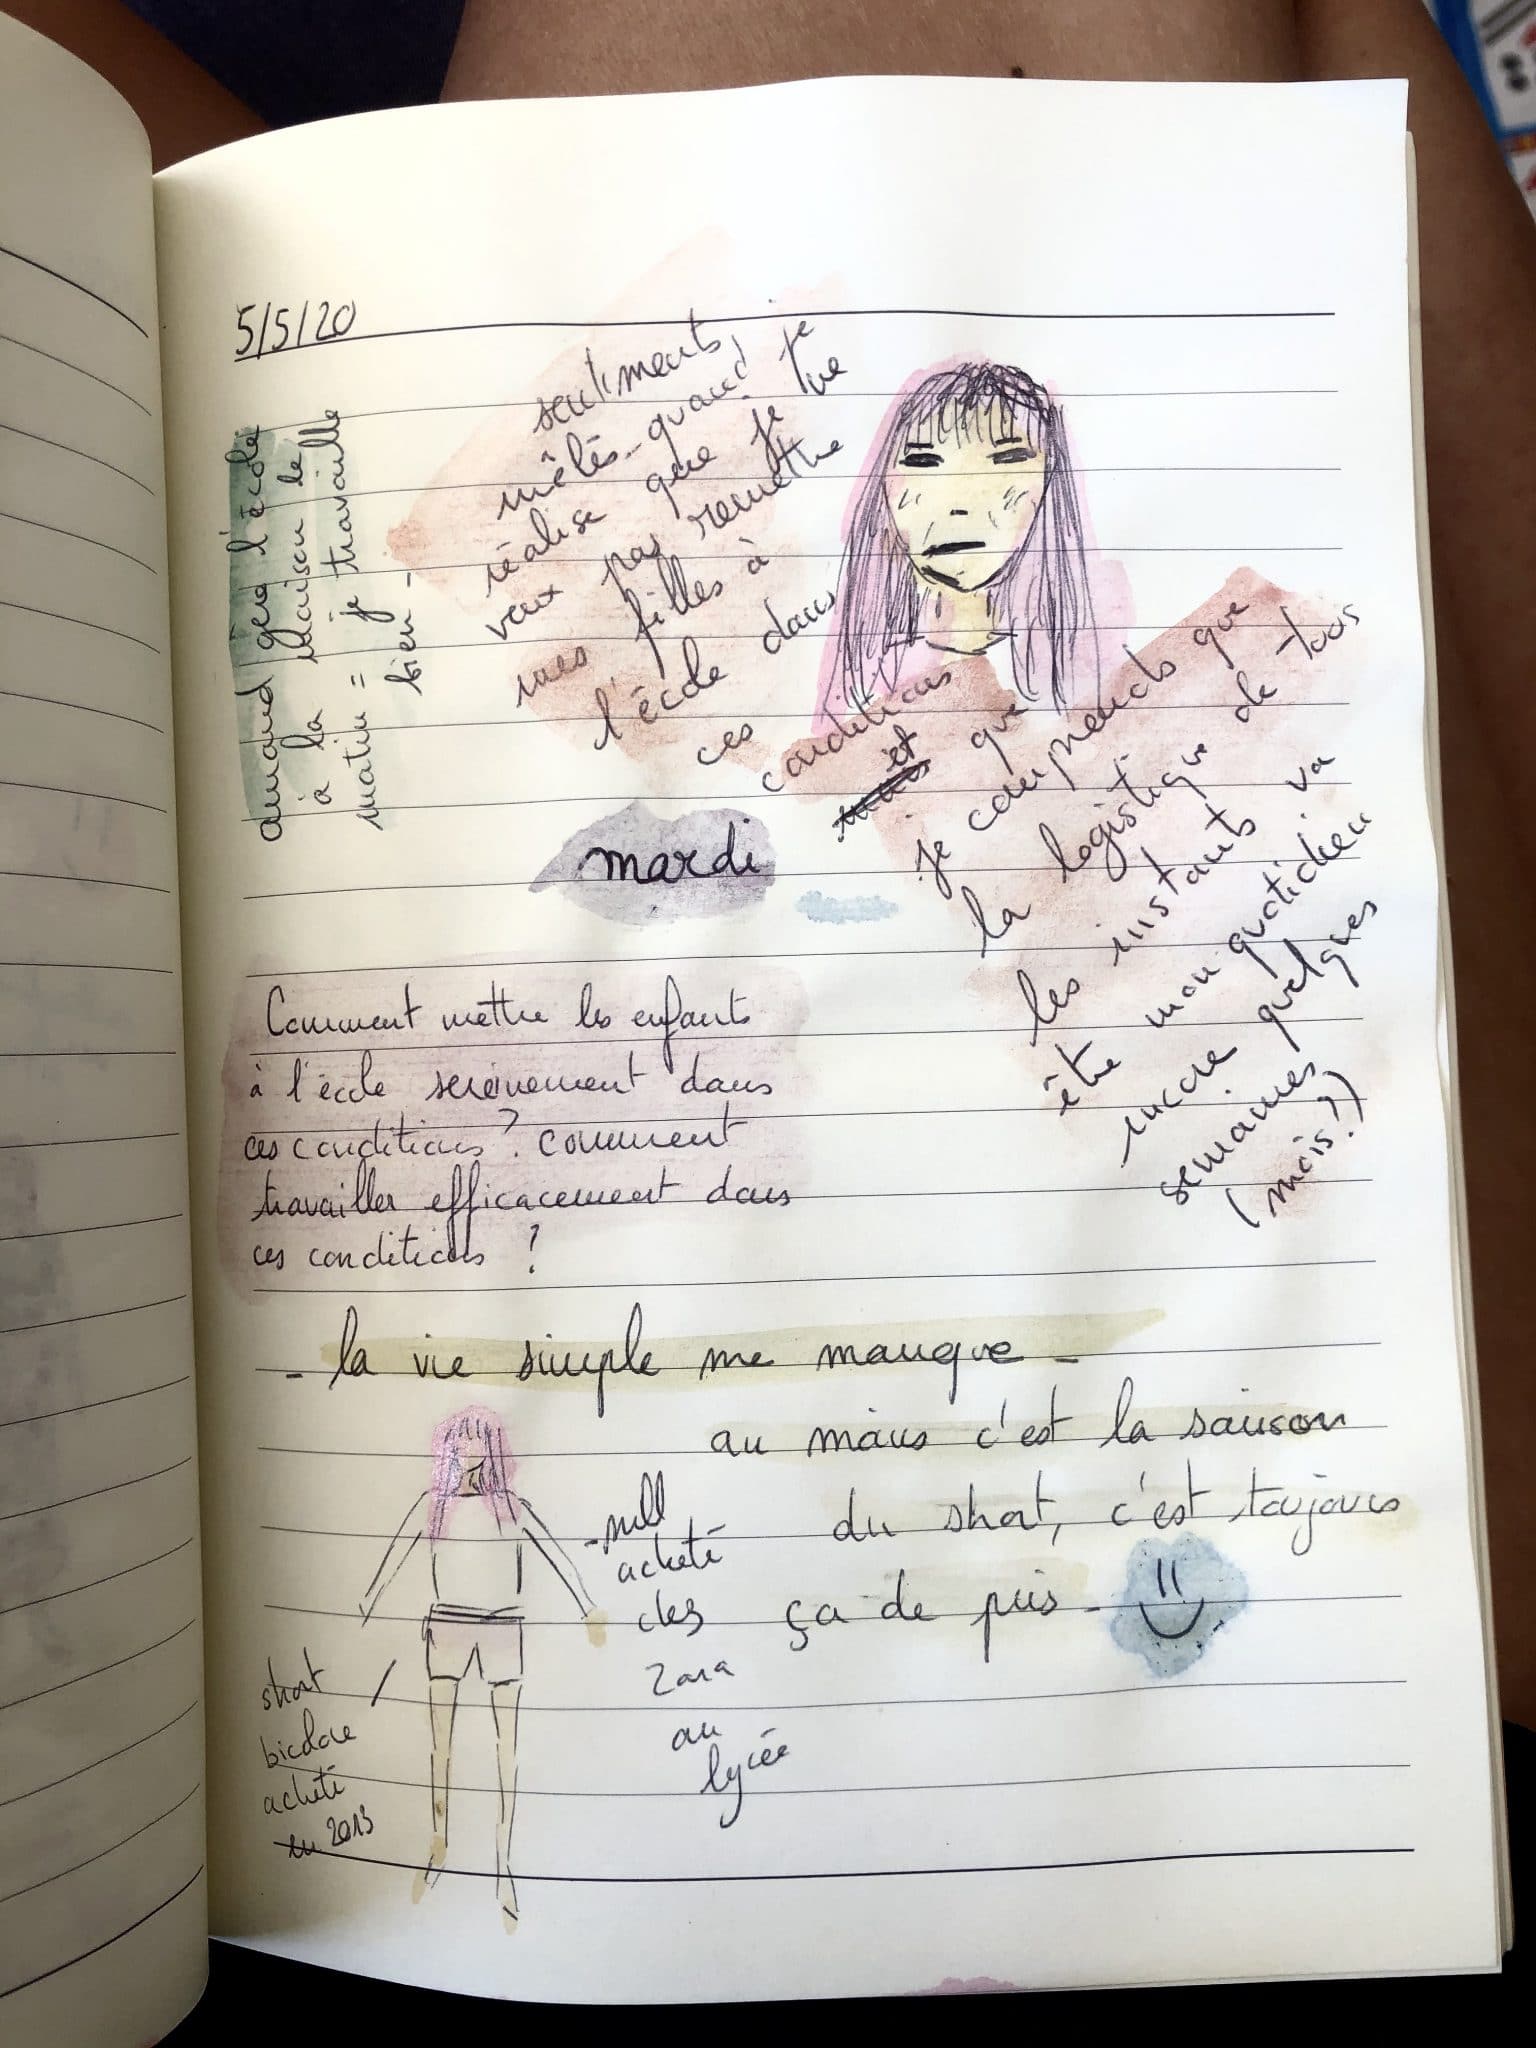 5/5/20
amand gère l'école
à la maison le
matin = je travaille
bien -
sentiments
mêlés - quand je
réalise que je ne
veux pas remettre
mes filles à
l'école dans
ces
conditions
et que
je comprends que
la logistique de tous
les instants va
être mon quotidien
encore quelques
semaines
(mois?)
mardi
Comment mettre les enfants
à l'école sereinement dans
ces conditions? comment
travailler efficacement dans
ces conditions ?
- la vie simple me manque -
au moins c'est la saison
du short, c'est toujours
ça de pris -
- pull
acheté
chez
Zara
au
lycée
short
bicolore
acheté
en 2013